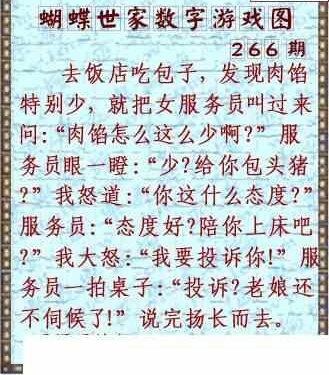 蝴蝶世家数字游戏图
266 期
去饭店吃包子，发现肉馅
特别少，就把女服务员叫过来
问:“肉馅怎么这么少啊?” 服
务员眼一瞪:“少?给你包头猪
?” 我怒道:“你这什么态度?”
服务员:“态度好?陪你上床吧
?” 我大怒:“我要投诉你!” 服
务员一拍桌子:“投诉?老娘还
不伺候了!” 说完扬长而去。